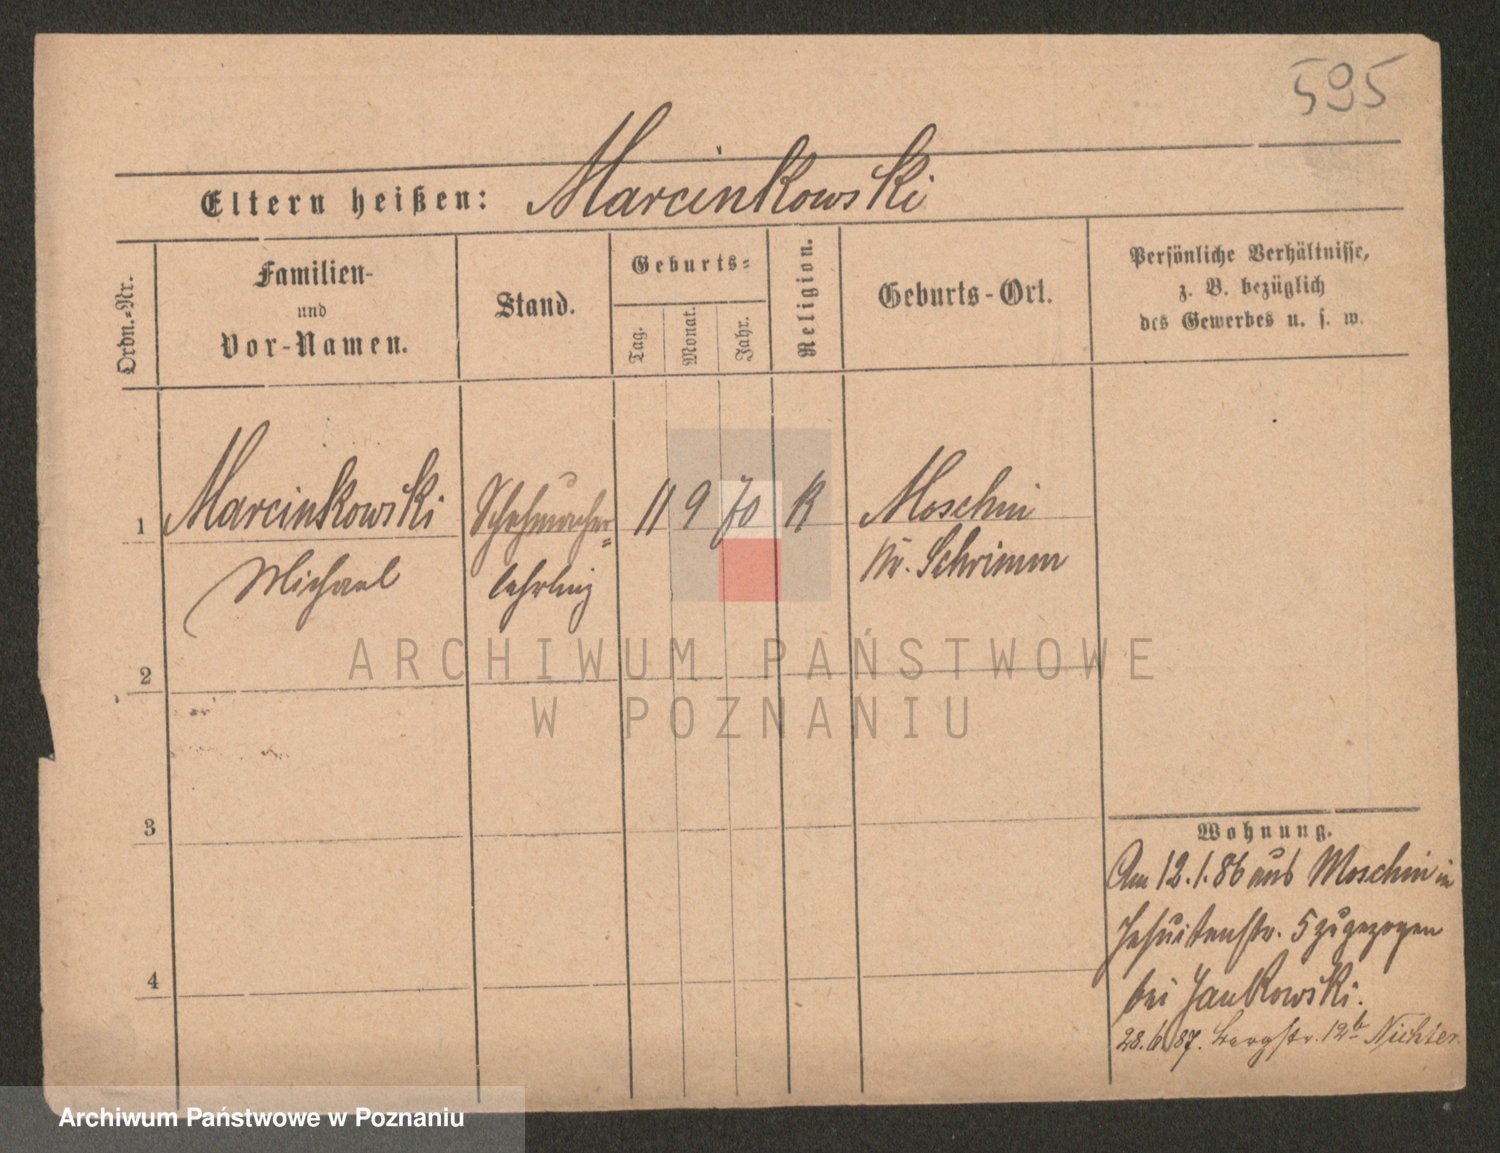 595
Eltern heißen: Marcinkowski
Ordn.-Nr.
Familien-
und
Vor-Namen.
Stand.
Geburts-
Tag.
Monat.
Jahr.
Religion.
Geburts-Ort.
Persönliche Verhältnisse,
z. B. bezüglich
des Gewerbes u. s. w.
1 Marcinkowski Schuhmacher= 11 9 70 K Moschin
Michael lehrling Kr. Schrimm
2
3
4
Wohnung.
Am 12.1.86 aus Moschin in
Jesuitenstr. 5 zugezogen
bei Jankowski.
28.6.87. Bergstr. 12b
ARCHIWUM PAŃSTWOWE
W POZNANIU
Archiwum Państwowe w Poznaniu